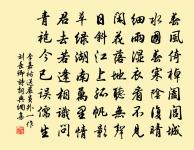 春風倚棹闔閭城
水國春寒陰復晴
細雨濕衣看不見
閑花落地聽無聲
日斜江上孤帆影
草綠湖南萬里情
君去若逢相識問
青袍今已誤儒生
李嘉祐送嚴員外一作
劉長卿詩詞典網集